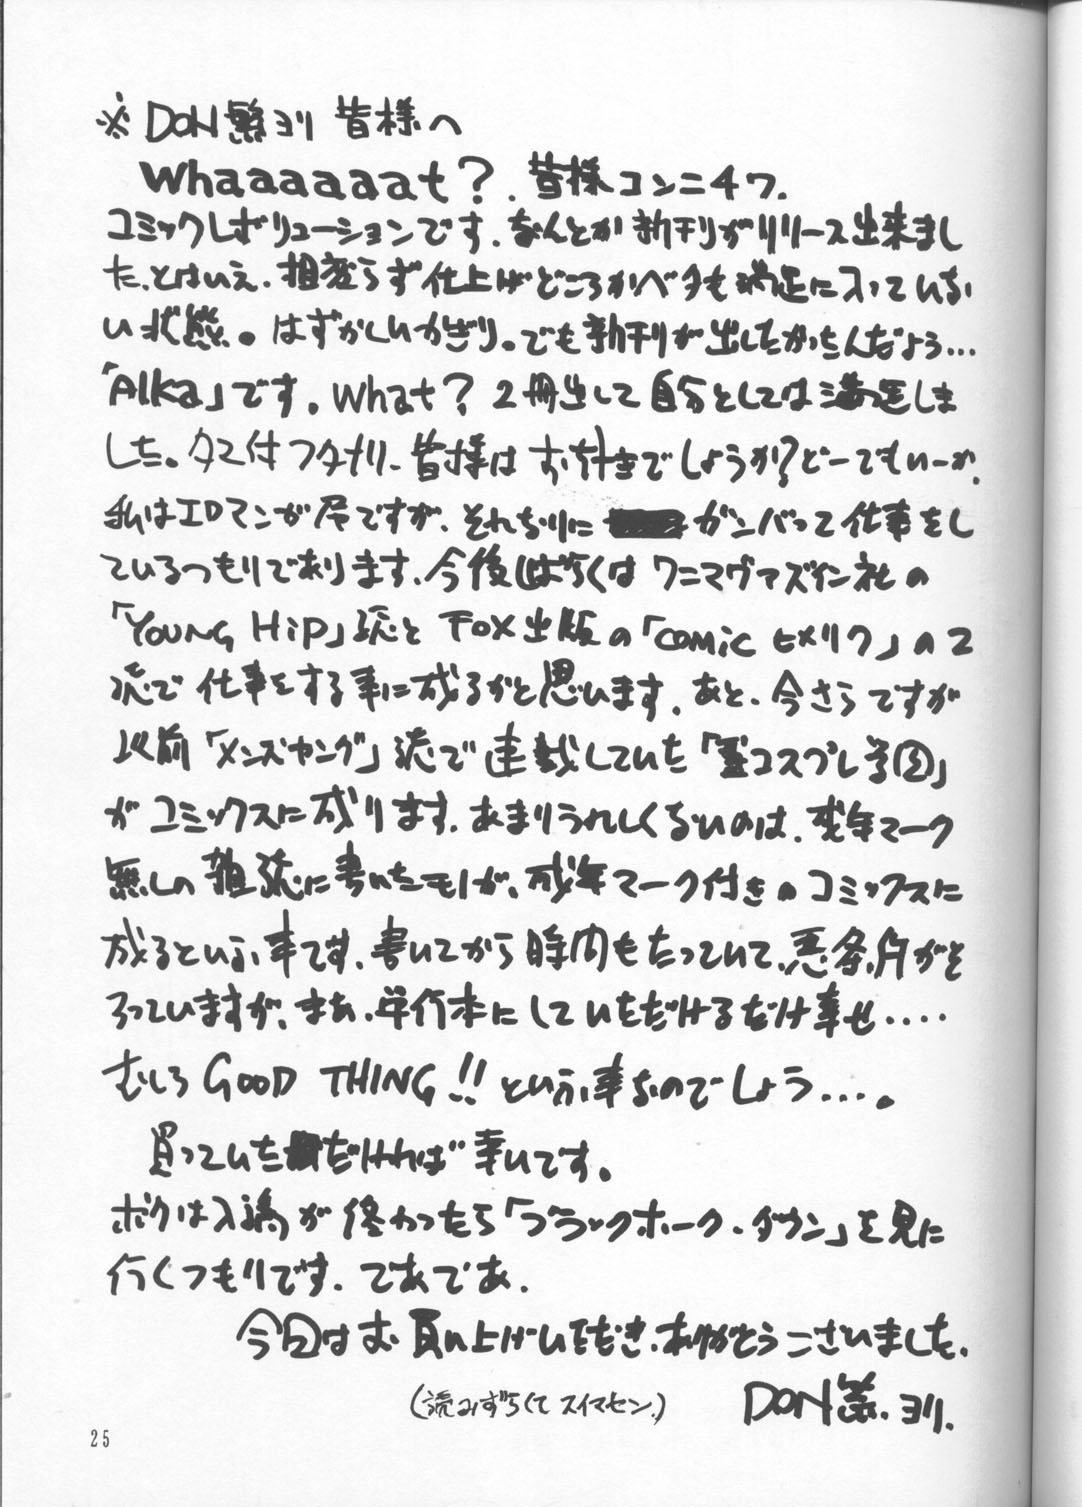 ※DON繁ヨリ 皆様へ
Whaaaaaaat?. 皆様コンニチワ.
コミックレボリューションです. なんとか新刊がリリース出来まし
た. とはいえ. 相変らず仕上げどころかベタも満足に入っていな
い状態。はずかしいかぎり。でも新刊が出したかったんだよう…
「Alka」です。What? 2冊出して自分としては満足しま
した。タマ付フタナリ. 皆様はお好きでしょうか?どーでもいーか.
私はエロマンガ屋ですが. それなりに ガンバって仕事をし
ているつもりであります. 今後しばらくはワニマガジン社の
「YOUNG HiP」誌と FOX出版の「COMiC ヒメクリ」の2
誌で仕事をする事に成るかと思います. あと. 今さらですが
以前「メンズヤング」誌で連載していた「コスプレ学園」
がコミックスに成ります. あまりうれしくないのは. 成年マーク
無しの雑誌に書いたモノが. 成年マーク付きのコミックスに
成るという事です. 書いてから時間もたっていて. 悪条件がそ
ろっていますが. まあ. 単行本にしていただけるだけ幸せ‥‥
むしろ GOOD THING!! という事なのでしょう…。
買っていただければ幸いです。
ボクは入稿が終わったら「ブラックホーク・ダウン」を見に
行くつもりです. であであ.
今回はお買い上げいただき. ありがとうございました.
(読みずらくてスイマセン.)
DON繁. ヨリ.
25